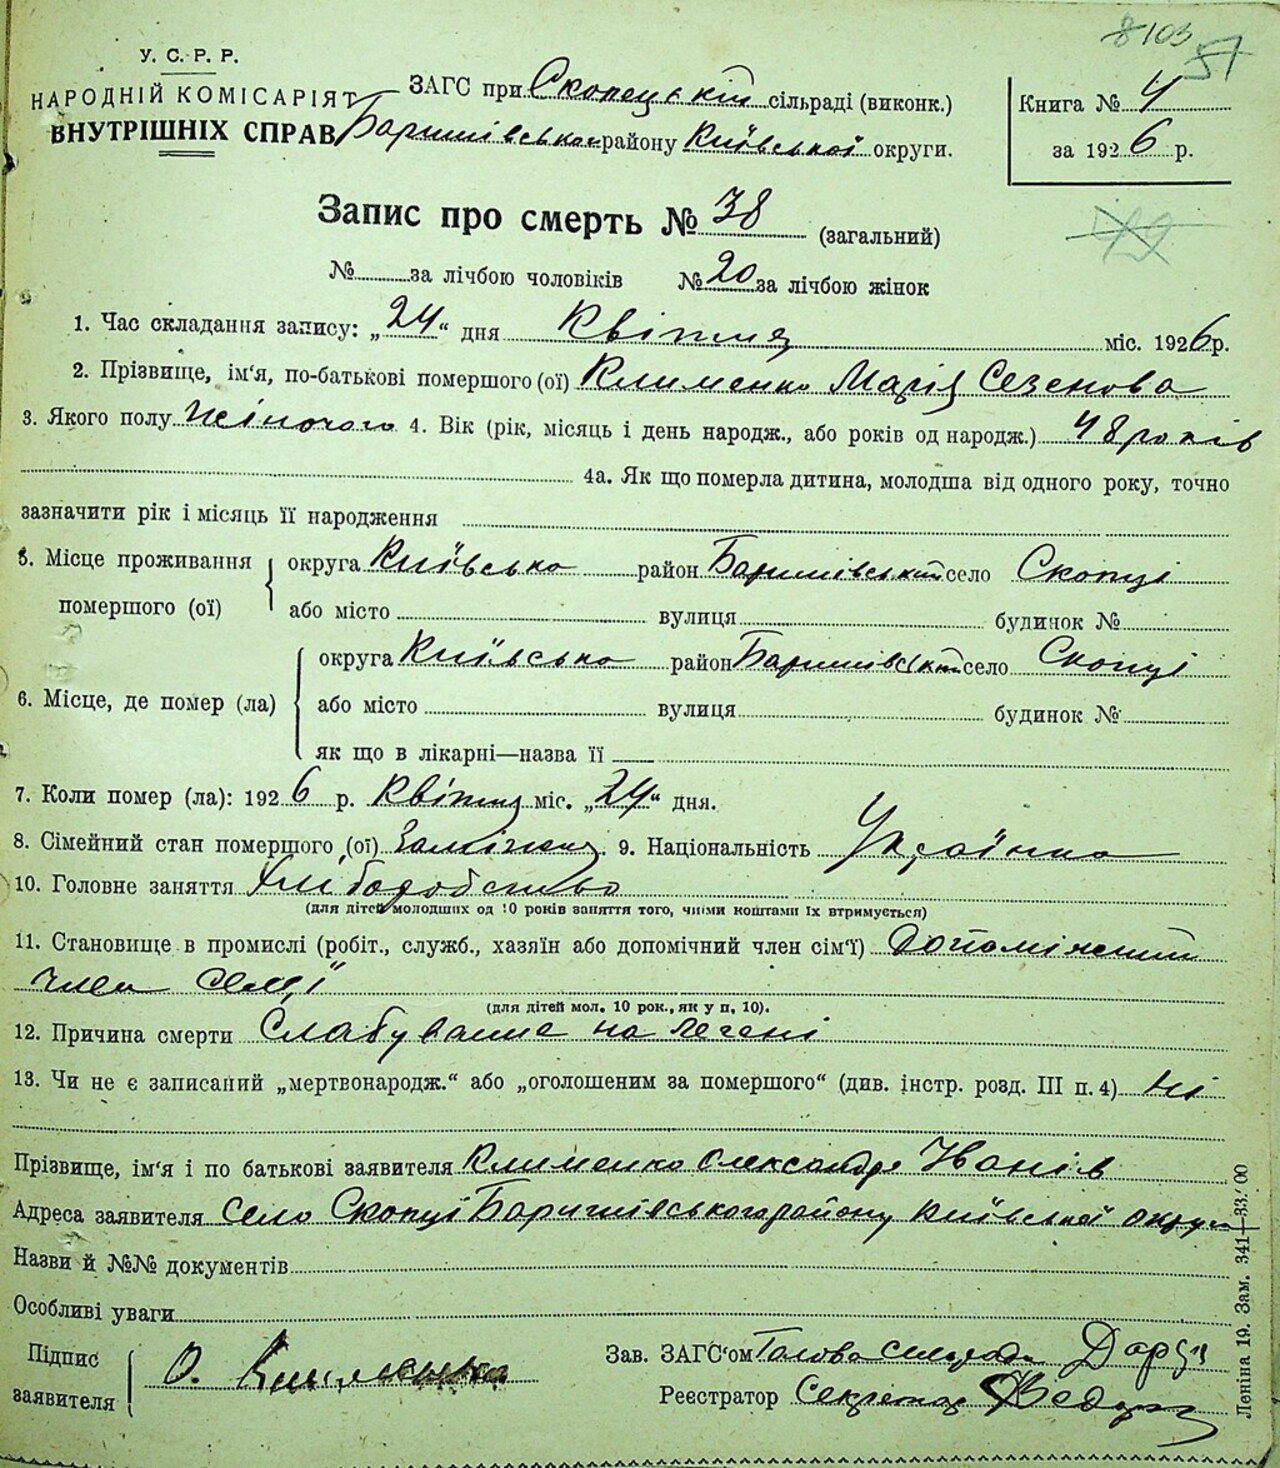 8103
57
У. С. Р. Р.
НАРОДНІЙ КОМІСАРІЯТ
ВНУТРІШНІХ СПРАВ
ЗАГС при Скопецькій сільраді (виконк.)
Баришівського району Київської округи.
Книга № 4
за 1926 р.
Запис про смерть № 38 (загальний)
№ за лічбою чоловіків № 20 за лічбою жінок
1. Час складання запису: „24“ дня Квітня міс. 1926 р.
2. Прізвище, ім‘я, по-батькові помершого (ої) Клименко Марія Сезонова
3. Якого полу жіночого 4. Вік (рік, місяць і день народж., або років од народж.) 48 років
4а. Як що померла дитина, молодша від одного року, точно
зазначити рік і місяць її народження
5. Місце проживання помершого (ої) округа Київсько район Баришівський село Скопці
або місто вулиця будинок №
6. Місце, де помер (ла) округа Київсько район Баришівський село Скопці
або місто вулиця будинок №
як що в лікарні—назва її
7. Коли помер (ла): 1926 р. Квітня міс. „24“ дня.
8. Сімейний стан помершого (ої) Заміжня 9. Національність Українка
10. Головне заняття Хліборобство
(для дітей молодших од 10 років заняття того, чиїми коштами їх втримується)
11. Становище в промислі (робіт., служб., хазяїн або допомічний член сім‘ї) Допоміжний
член семї
(для дітей мол. 10 рок., як у п, 10).
12. Причина смерти Слабування на легені
13. Чи не є записаний „мертвонародж.“ або „оголошеним за помершого“ (див. інстр. розд. III п. 4) ні
Прізвище, ім‘я і по батькові заявителя Клименко Олександр Іванів
Адреса заявителя Село Скопці Баришівського району Київської округи
Назви й №№ документів
Особливі уваги
Підпис
заявителя
О. Клименко
Зав. ЗАГС‘ом Голова сільради
Реєстратор Секретар
Леніна 19. Зам. 341—33.000